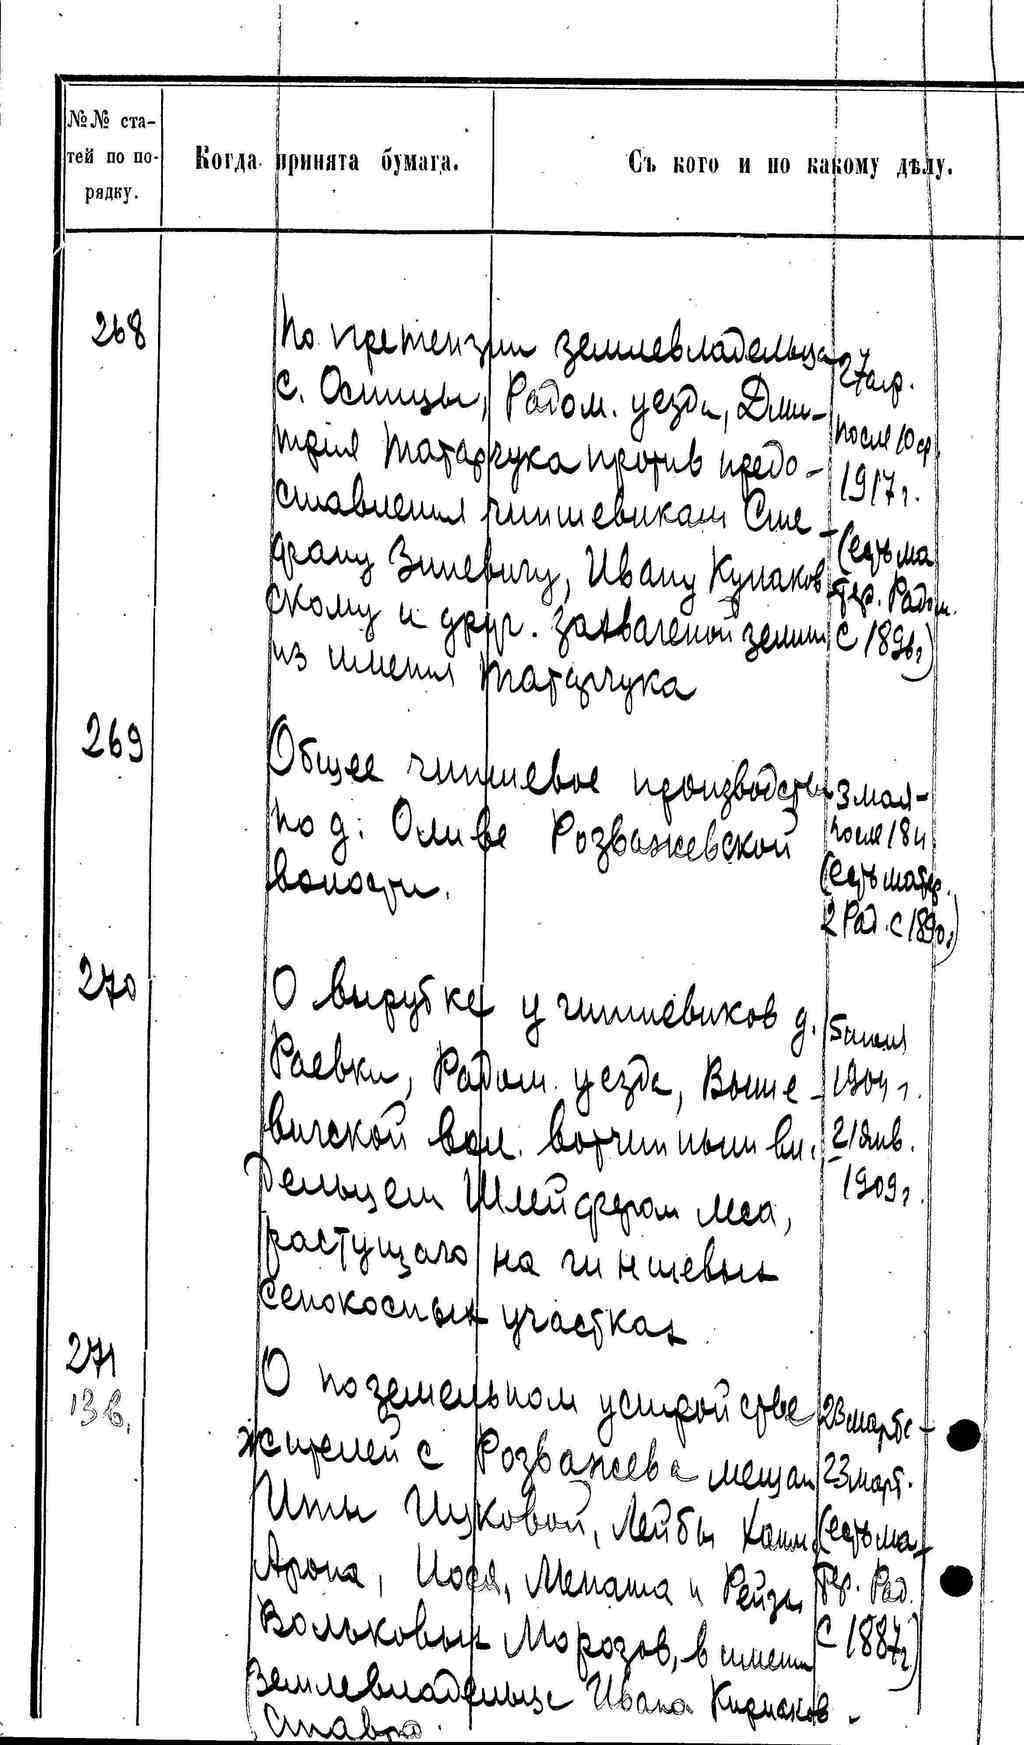 №№ ста-
тей по по-
рядку.
Когда принята бумага.
Съ кого и по какому дѣлу.
268
По претензии землевладельца
с. Осницы, Радом. уезда, Дми-
трия Татарчука против предо-
ставления чиншевикам Сте-
фану Зиневичу, Ивану Кулаков
скому и друг. захваченой земли
из имения Татарчука
27 апр.
после 10 ср.
1917 г.
(есть ма
тер. Радом.
с 1896 г)
269
Общее чиншевое производство
по д. Оливе Розважевской
волости.
3 мая-
после 18
(есть матер.
2 Рад. с 1890 г)
270
О вырубке у чиншевиков д.
Раевки, Радом. уезда, Выше-
вичской вол. вотчинным вла
дельцем Шлейфером леса,
растущего на чиншевых
сенокосных участках
5 июля
1904 г.
21 янв.
1909 г.
271
13 в.
О поземельном устройстве
жителей с Розважева мещан
Ицковой, Лейбы Хаим
Арона, Иося, Менаша и Рейзы
Вольковых Морозов, в имении
землевладельца Ивана Кирьяков-
23 март
23 март.
(есть ма-
тер. Рад.
с 1887 г)